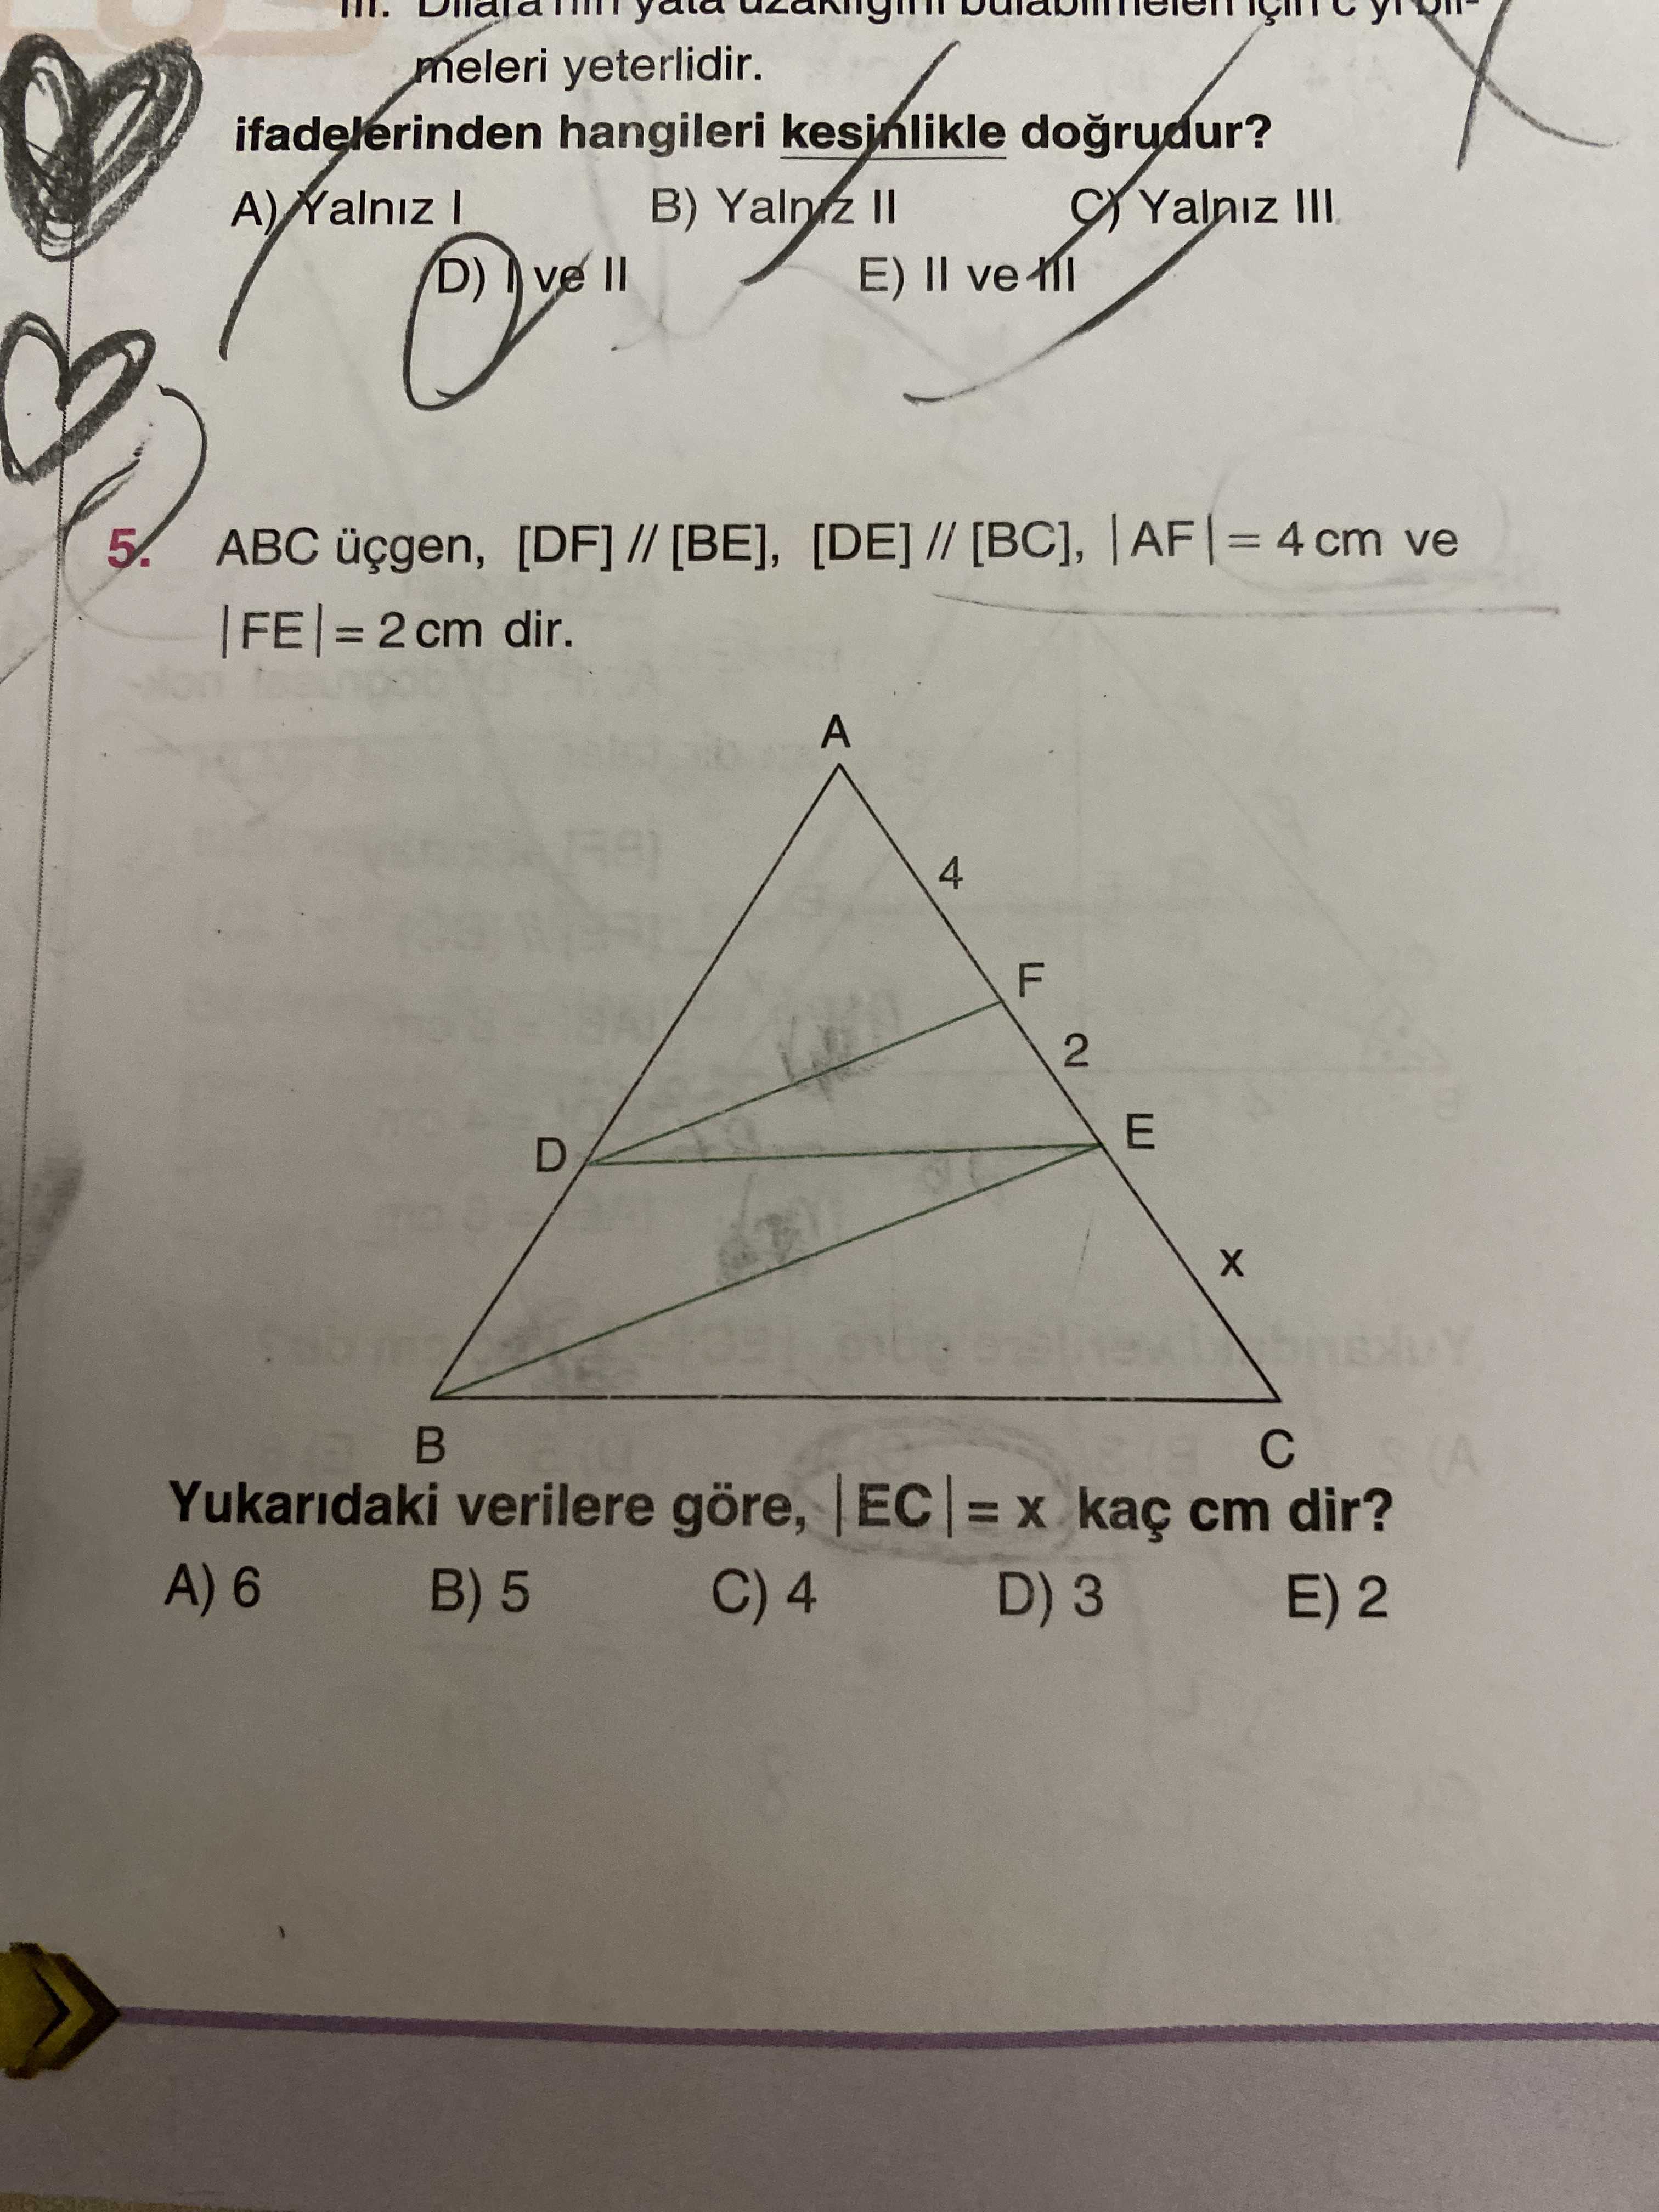 III. Dilara'nın yata uzaklığını bulabilmeleri için c yi bil-
meleri yeterlidir.
ifadelerinden hangileri kesinlikle doğrudur?
A) Yalnız I B) Yalnız II C) Yalnız III
D) I ve II E) II ve III
5. ABC üçgen, [DF] // [BE], [DE] // [BC], |AF| = 4 cm ve
|FE| = 2 cm dir.
A
4
F
2
D
E
x
B
C
Yukarıdaki verilere göre, |EC| = x kaç cm dir?
A) 6 B) 5 C) 4 D) 3 E) 2